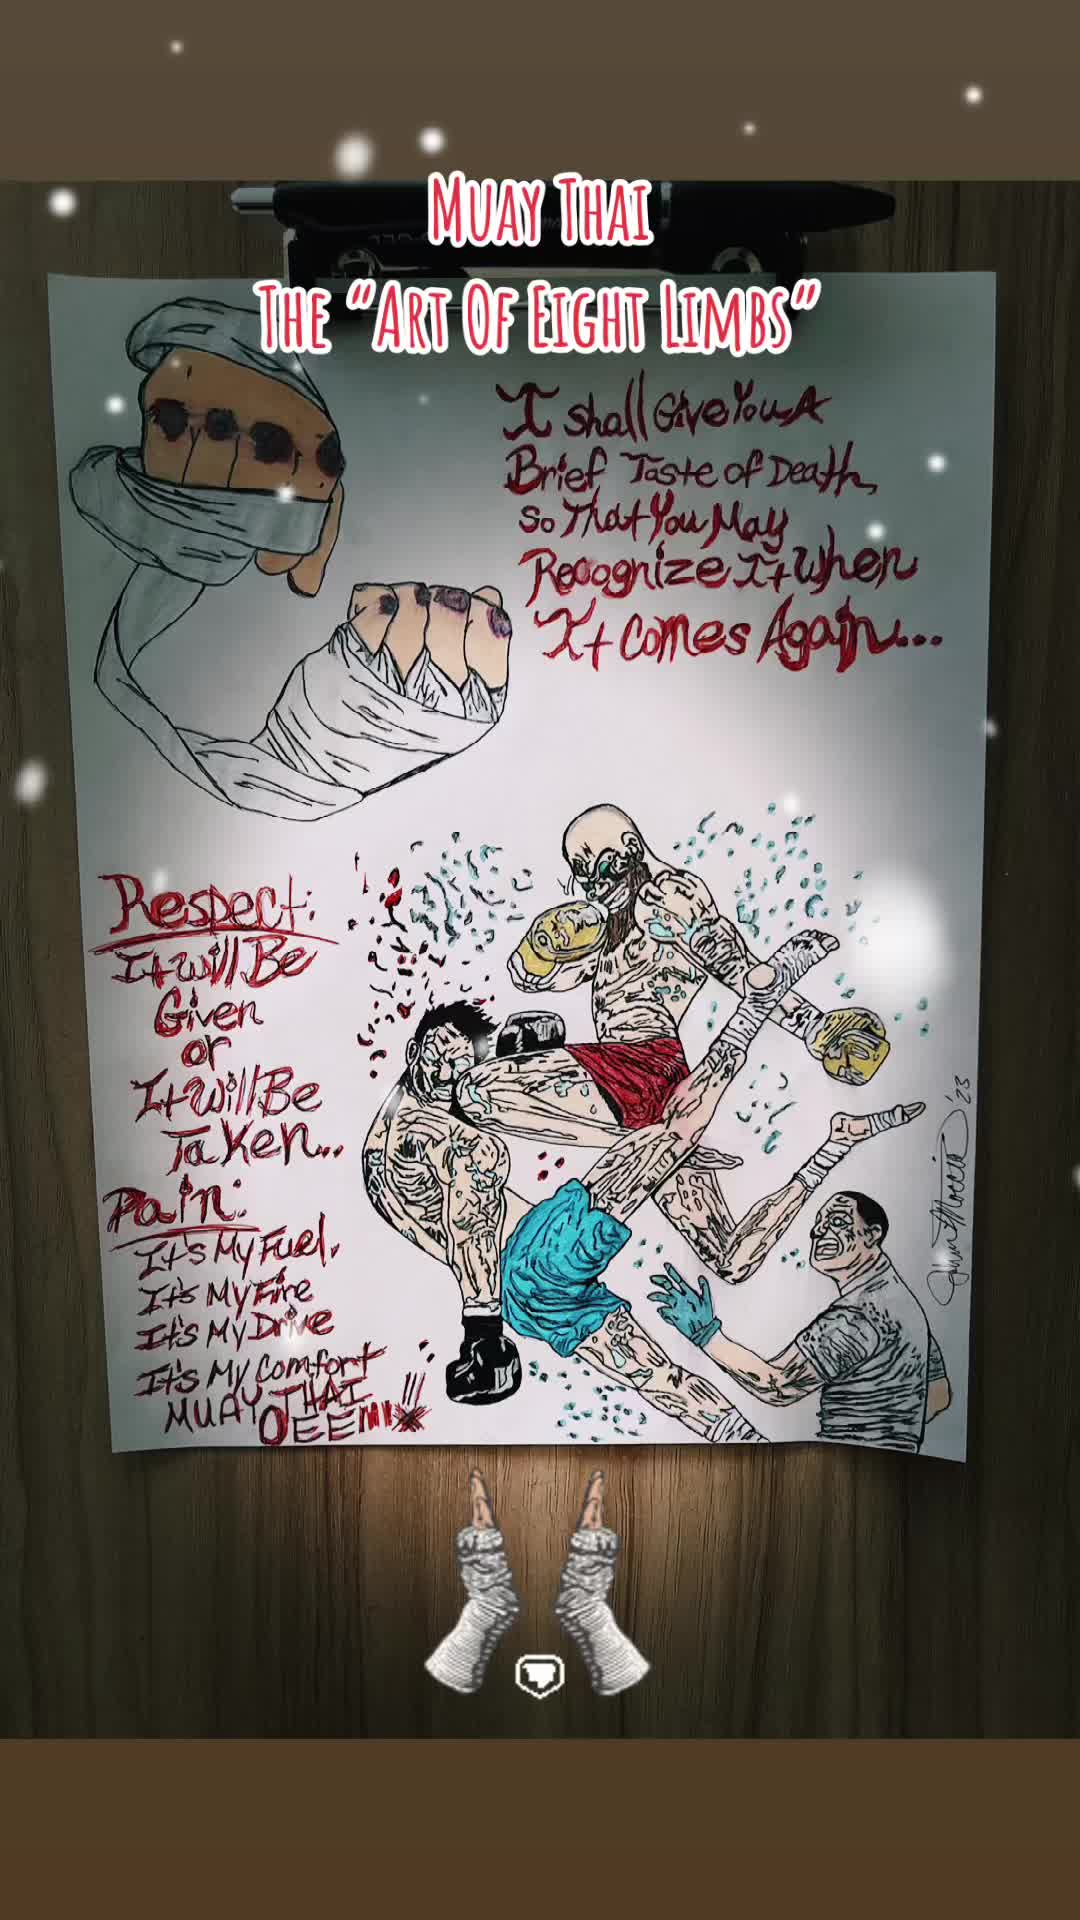 Muay Thai
The “Art Of Eight Limbs”
I shall Give You A
Brief Taste of Death,
So That You May
Recognize It When
It Comes Again...
Respect:
It will Be
Given
or
It Will Be
Taken...
Pain:
It's My Fuel.
It's My Fire
It's My Drive
It's My Comfort
MUAY THAI
OEEE
'23